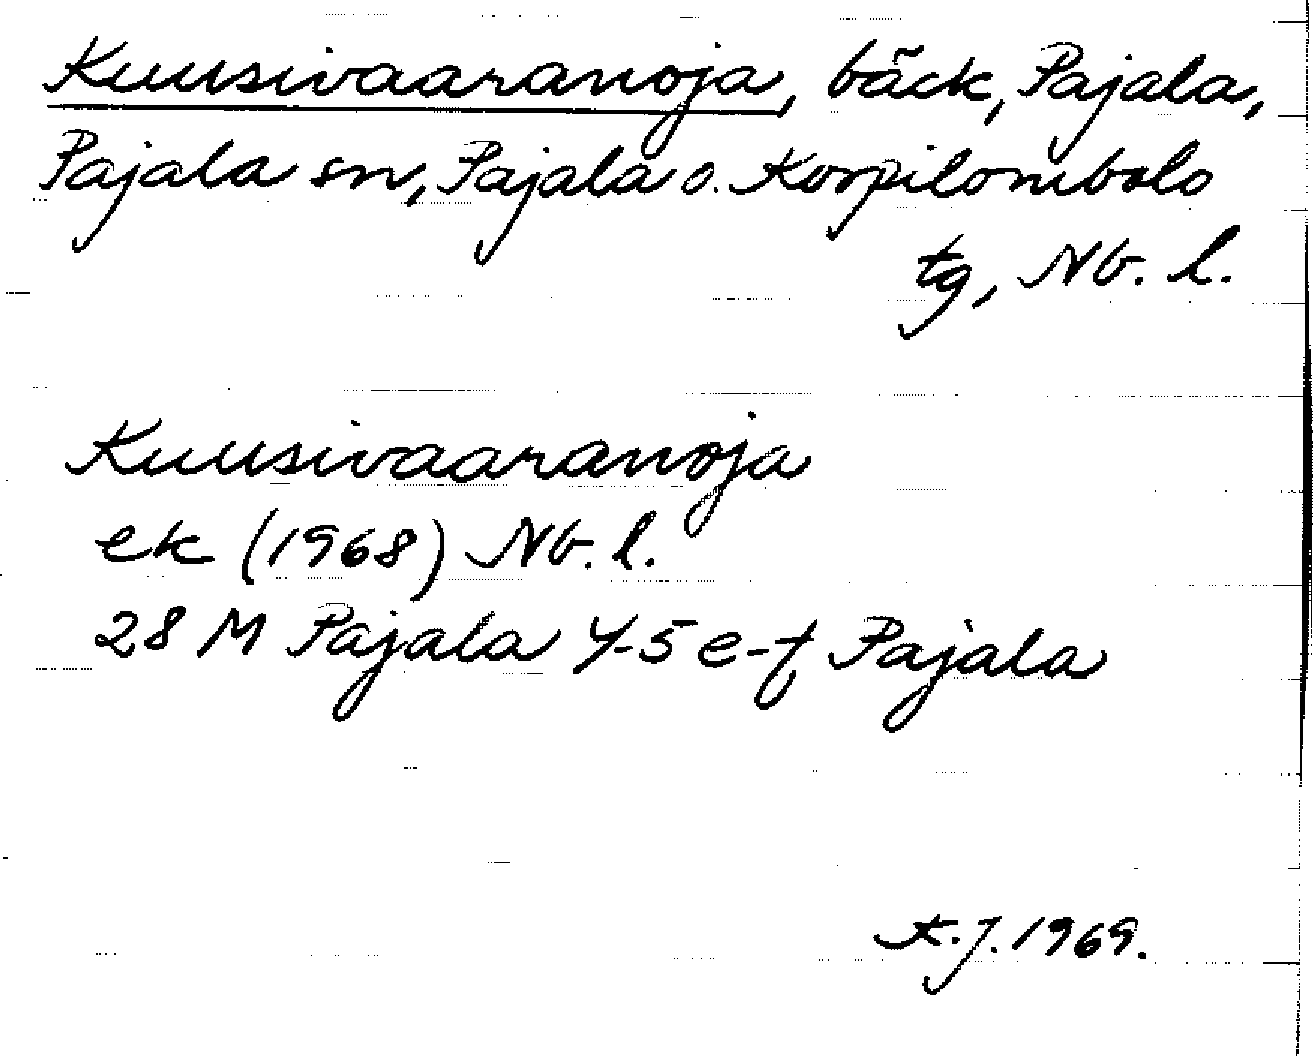 Kuusivaaranoja, bäck, Pajala,
Pajala sn, Pajala o. Korpilombolo
tg, Nb. l.
Kuusivaaranoja
ek (1968) Nb. l.
28 M Pajala 4-5 e-f Pajala
K.J. 1969.